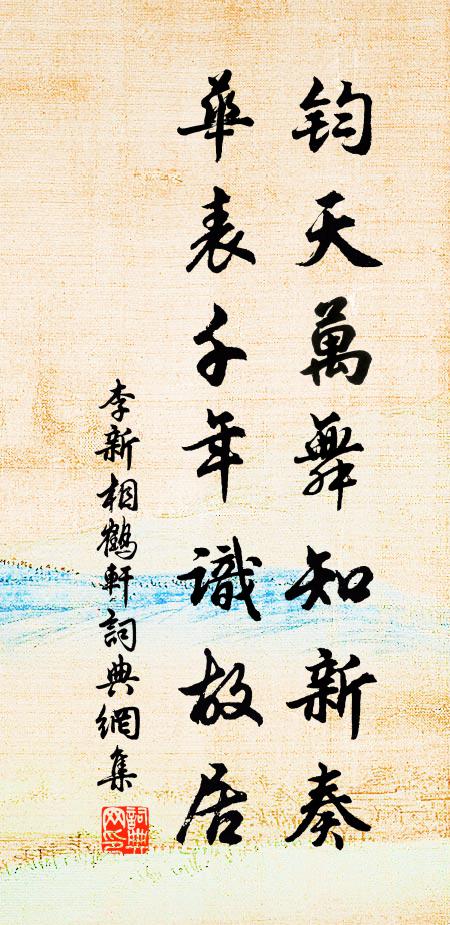 鈞天萬舞知新奏
華表千年識故居
李新相鶴軒詞典網集
詞典網印